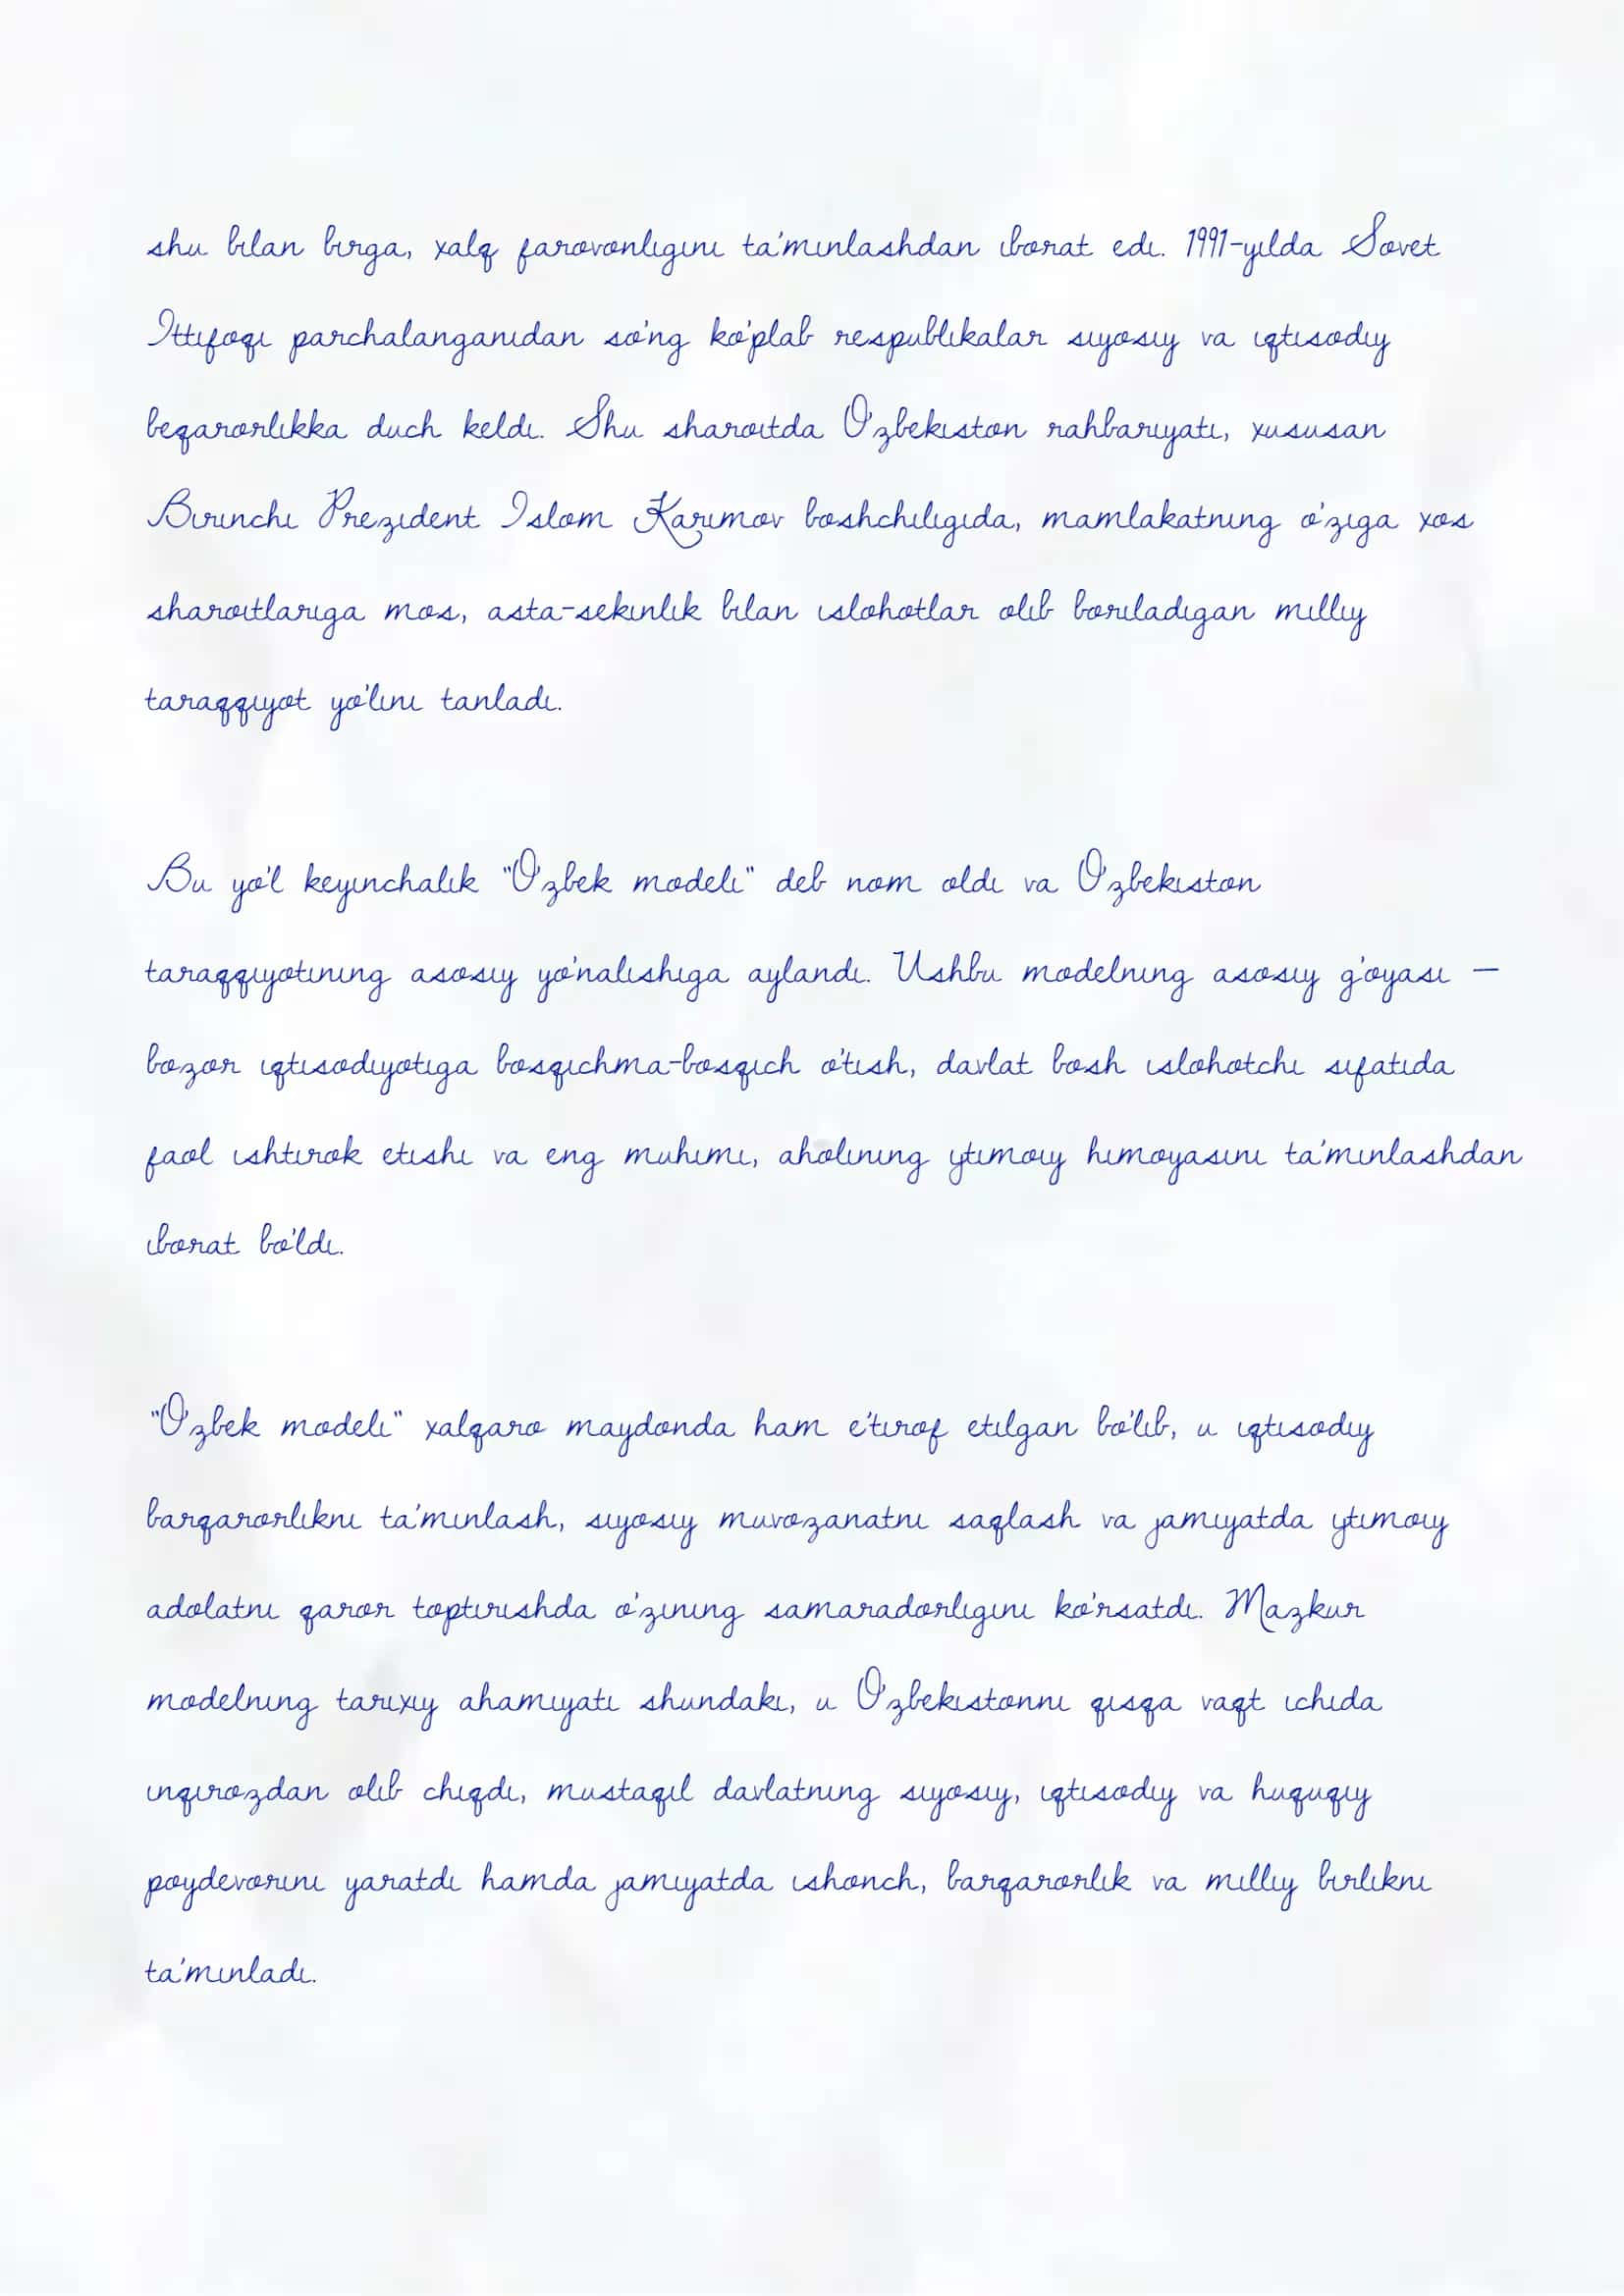 shu bilan birga, xalq farovonligini ta'minlashdan iborat edi. 1991-yilda Sovet
Ittifoqi parchalanganidan so'ng ko'plab respublikalar siyosiy va iqtisodiy
beqarorlikka duch keldi. Shu sharoitda O'zbekiston rahbariyati, xususan
Birinchi Prezident Islom Karimov boshchiligida, mamlakatning o'ziga xos
sharoitlariga mos, asta-sekinlik bilan islohotlar olib boriladigan milliy
taraqqiyot yo'lini tanladi.
Bu yo'l keyinchalik "O'zbek modeli" deb nom oldi va O'zbekiston
taraqqiyotining asosiy yo'nalishiga aylandi. Ushbu modelning asosiy g'oyasi —
bozor iqtisodiyotiga bosqichma-bosqich o'tish, davlat bosh islohotchi sifatida
faol ishtirok etishi va eng muhimi, aholining ytimoiy himoyasini ta'minlashdan
iborat bo'ldi.
"O'zbek modeli" xalqaro maydonda ham e'tirof etilgan bo'lib, u iqtisodiy
barqarorlikni ta'minlash, siyosiy muvozanatni saqlash va jamiyatda ytimoiy
adolatni qaror toptirishda o'zining samaradorligini ko'rsatdi. Mazkur
modelning tarixiy ahamiyati shundaki, u O'zbekistonni qisqa vaqt ichida
inqirozdan olib chiqdi, mustaqil davlatning siyosiy, iqtisodiy va huquqiy
poydevorini yaratdi hamda jamiyatda ishonch, barqarorlik va milliy birlikni
ta'minladi.